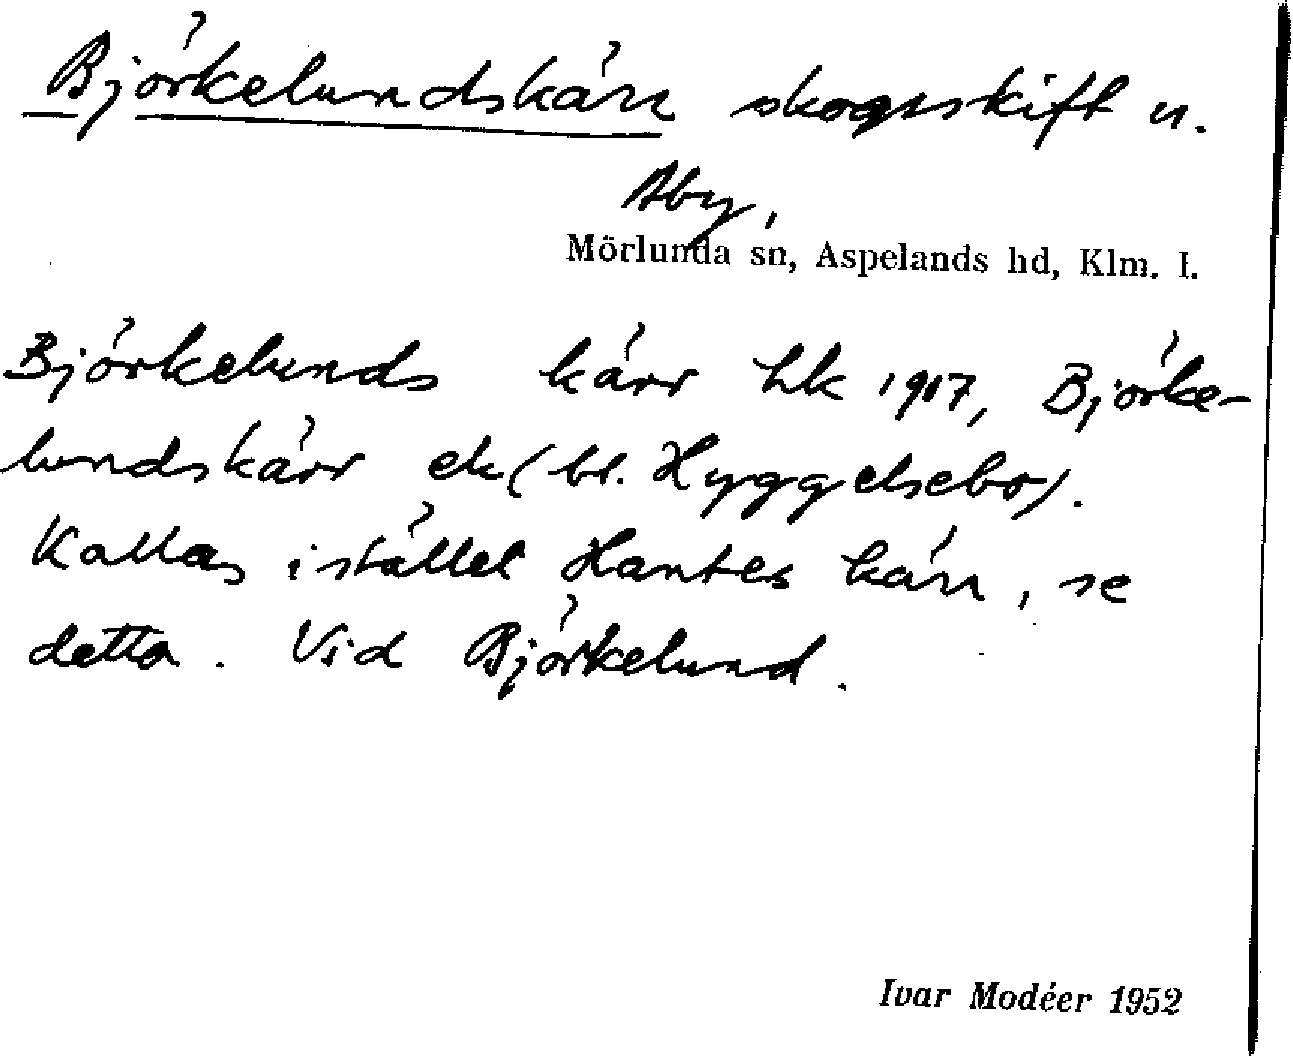 Björkelundskärr skogsskift u.
Åby,
Mörlunda sn, Aspelands hd, Klm. l.
Björkelunds kärr hk 1917, Björke-
lundskärr ek (bl. Hyggelsebo).
Kallas istället Hantes kärr, se
detta. Vid Björkelund.
Ivar Modéer 1952